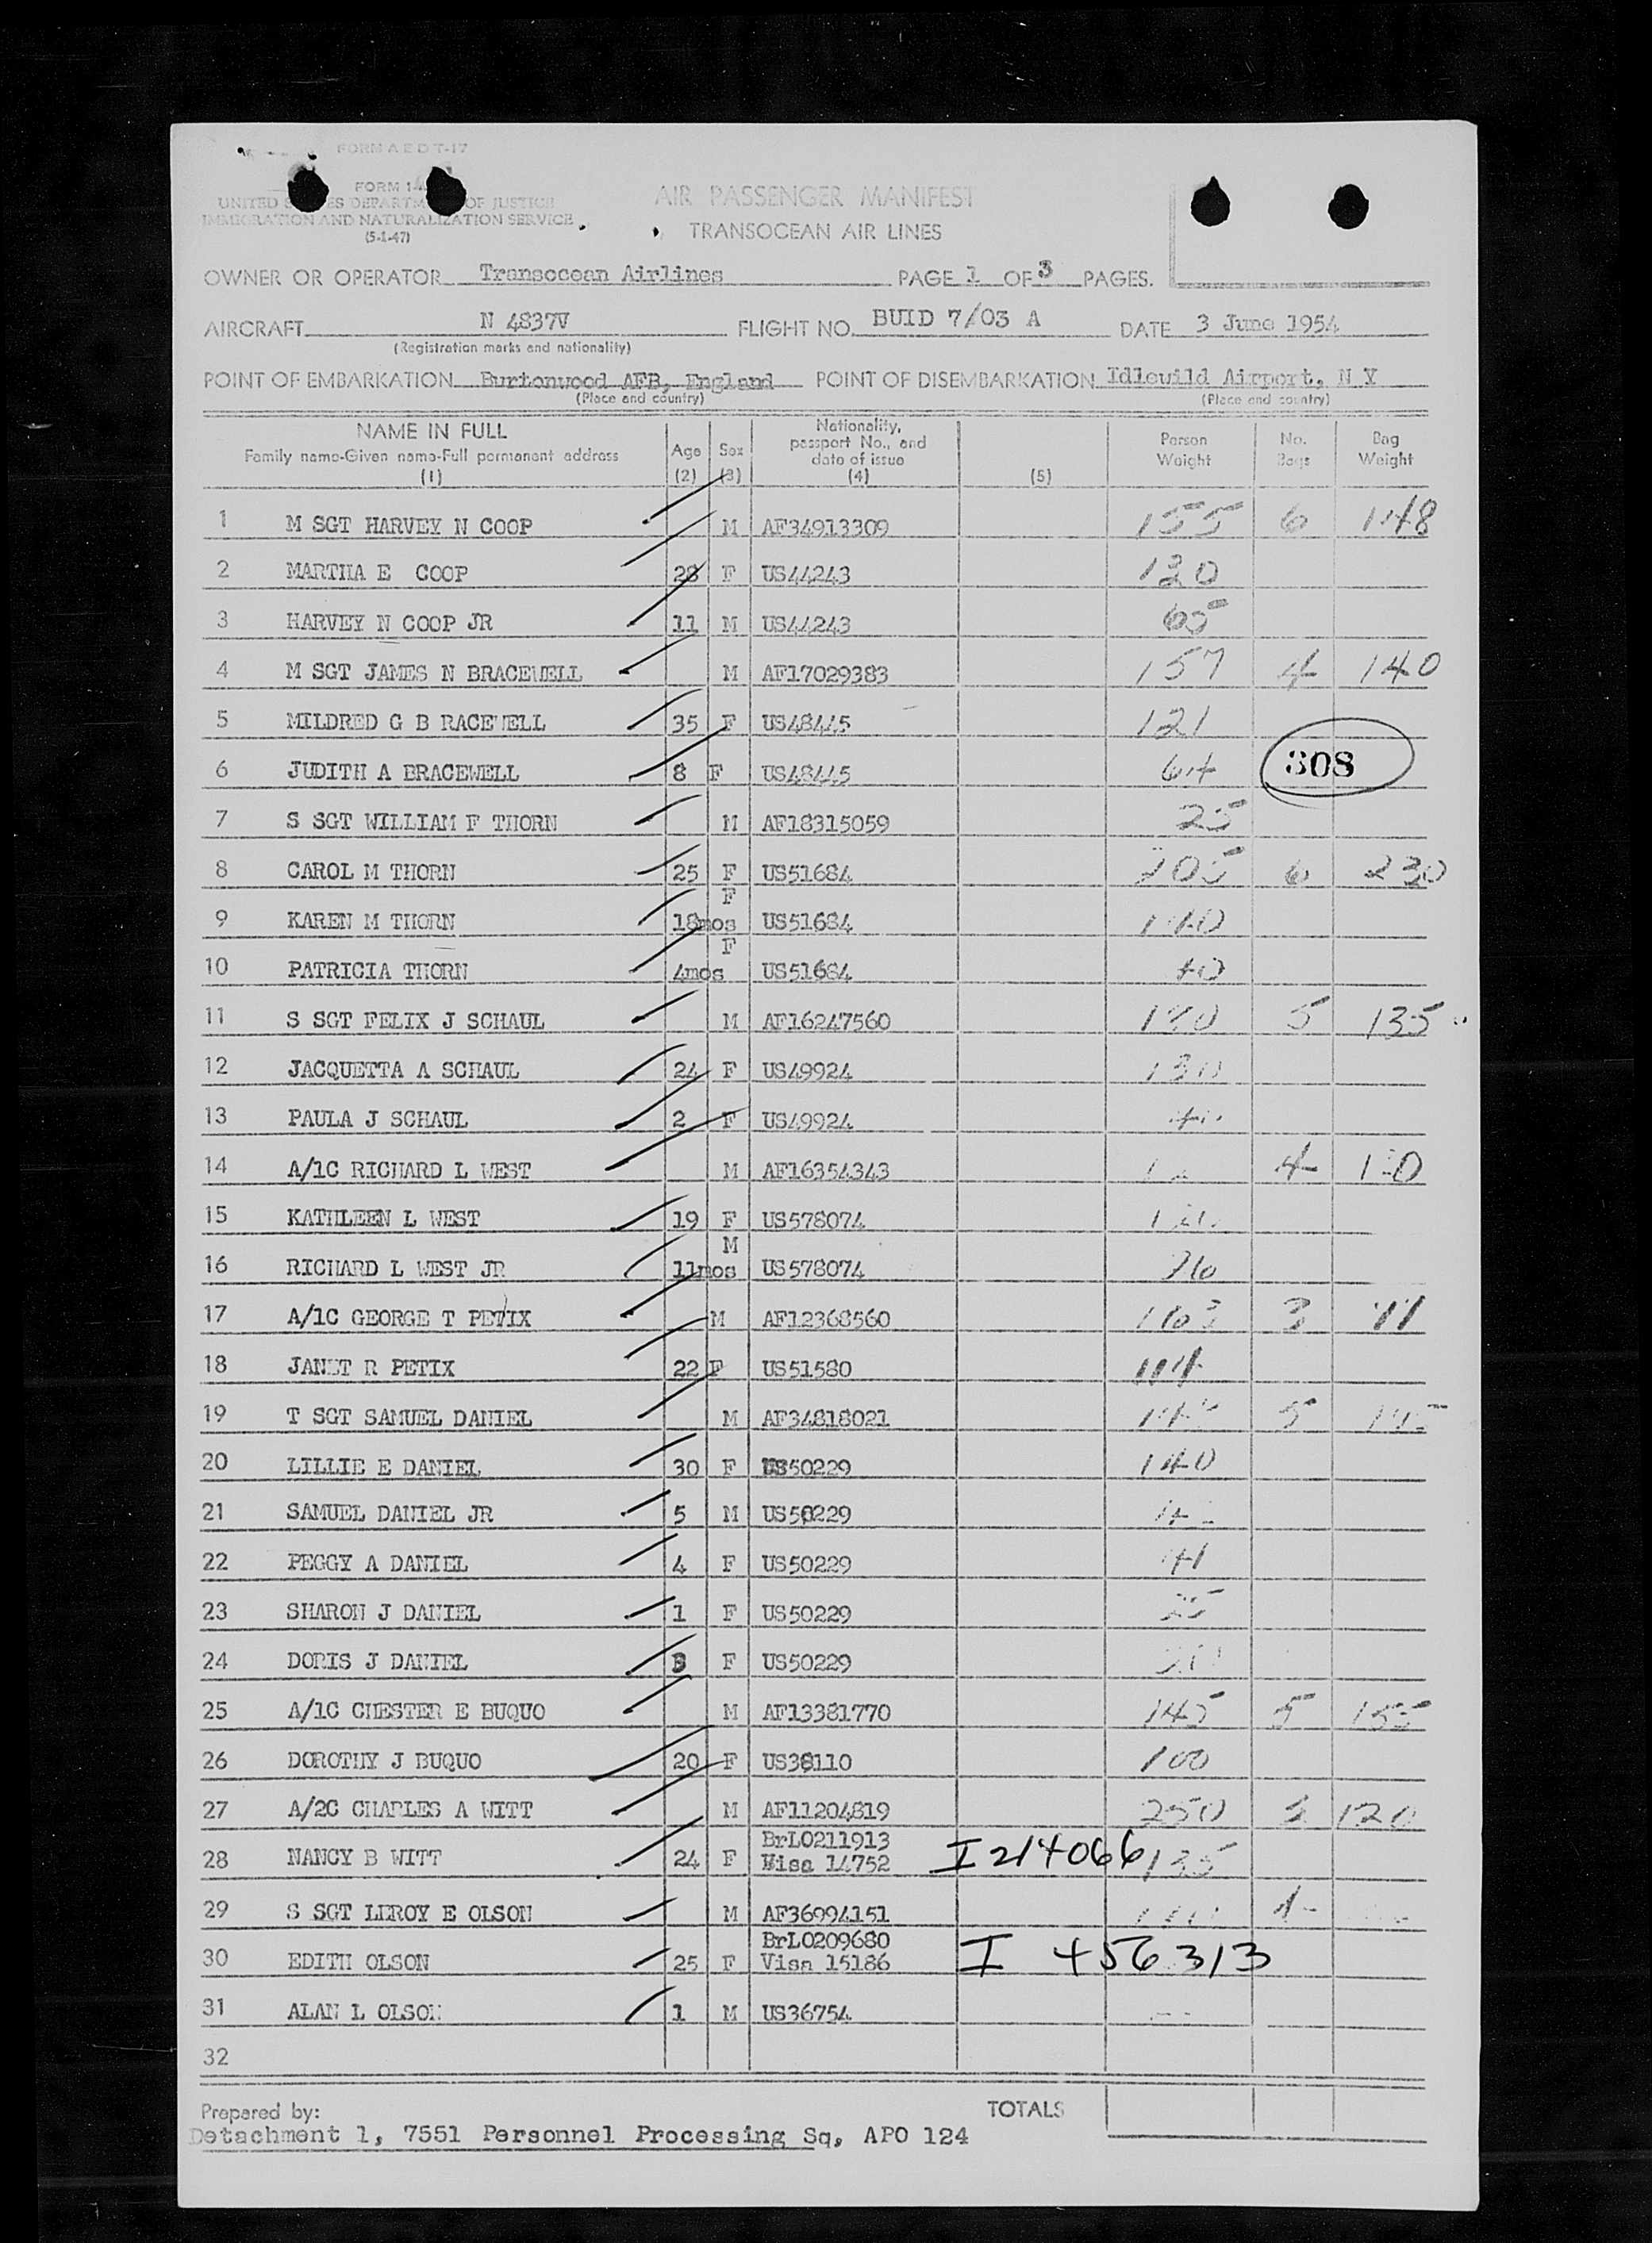 FORM A E D T-17
FORM 1-4
UNITED S ES DEPARTM OF JUSTICE
IMMIGRATION AND NATURALIZATION SERVICE
(5-1-47)
AIR PASSENGER MANIFEST
TRANSOCEAN AIR LINES
OWNER OR OPERATOR Transocean Airlines PAGE 1 OF 3 PAGES.
AIRCRAFT N 4837V FLIGHT NO. BUID 7/03 A DATE 3 June 1954
(Registration marks and nationality)
POINT OF EMBARKATION Burtonwood AFB, England POINT OF DISEMBARKATION Idlewild Airport, N Y
(Place and country) (Place and country)
NAME IN FULL Family name-Given name-Full permanent address (1) Age (2) Sex (3) Nationality, passport No., and date of issue (4) (5) Person Weight No. Bags Bag Weight
1 M SGT HARVEY N COOP M AF34913309 155 6 148
2 MARTHA E COOP 28 F US44243 130
3 HARVEY N COOP JR 11 M US44243 65
4 M SGT JAMES N BRACEWELL M AF17029383 157 4 140
5 MILDRED G B RACEWELL 35 F US48445 121
6 JUDITH A BRACEWELL 8 F US48445 64 308
7 S SGT WILLIAM F THORN M AF18315059 25
8 CAROL M THORN 25 F US51684 205 6 230
9 KAREN M THORN 18mos F US51684 140
10 PATRICIA THORN 4mos F US51684 40
11 S SGT FELIX J SCHAUL M AF16247560 5 135
12 JACQUETTA A SCHAUL 24 F US49924 130
13 PAULA J SCHAUL 2 F US49924
14 A/1C RICHARD L WEST M AF16354343 4
15 KATHLEEN L WEST 19 F US578074
16 RICHARD L WEST JR 11mos M US578074
17 A/1C GEORGE T PETIX M AF12368560 163 3 77
18 JANET R PETIX 22 F US51580 114
19 T SGT SAMUEL DANIEL M AF34818021 5
20 LILLIE E DANIEL 30 F US50229 140
21 SAMUEL DANIEL JR 5 M US50229
22 PEGGY A DANIEL 4 F US50229 41
23 SHARON J DANIEL 1 F US50229 25
24 DORIS J DANIEL 3 F US50229
25 A/1C CHESTER E BUQUO M AF13381770 145 5 155
26 DOROTHY J BUQUO 20 F US38110 100
27 A/2C CHARLES A WITT M AF11204819 250 120
28 NANCY B WITT 24 F BrL0211913 Visa 14752 I 214066 135
29 S SGT LEROY E OLSON M AF36994151
30 EDITH OLSON 25 F BrL0209680 Visa 15186 I 456313
31 ALAN L OLSON 1 M US36754
32
Prepared by: TOTALS
Detachment 1, 7551 Personnel Processing Sq, APO 124